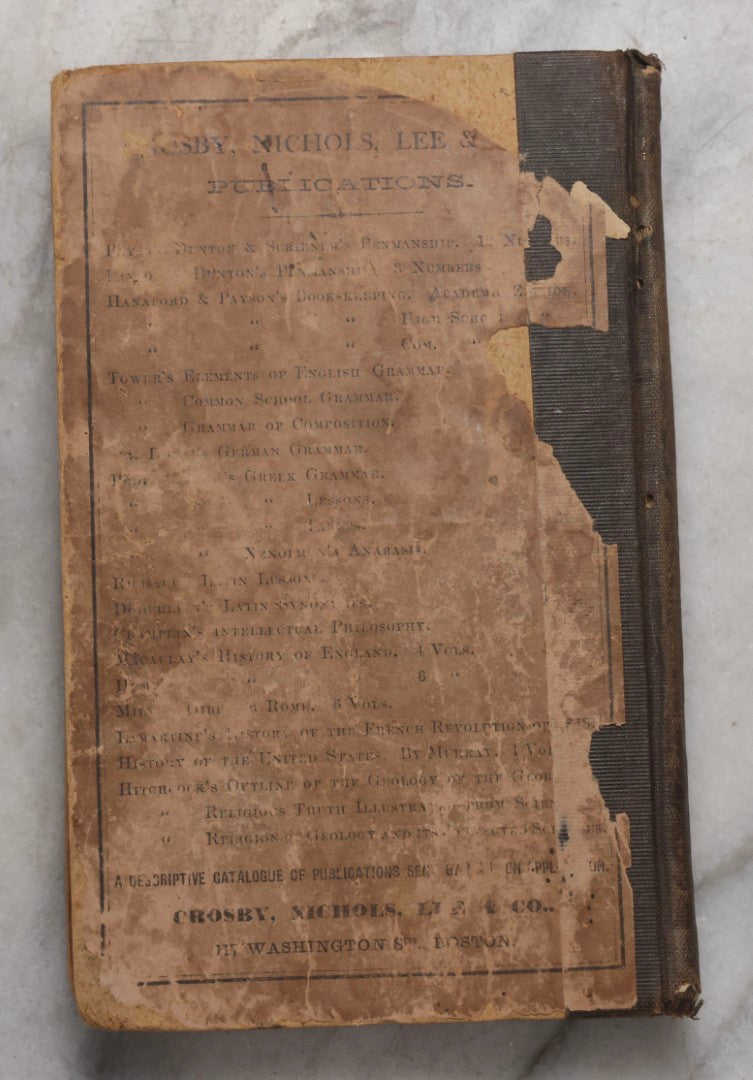 CROSBY, NICHOLS, LEE &
PUBLICATIONS.
DUNTON & SCRIBNER'S PENMANSHIP. 12
DUNTON'S PENMANSHIP 3 NUMBERS
HANAFORD & PAYSON'S BOOK-KEEPING.
" " " HIGH
" " " COM. "
TOWER'S ELEMENTS OF ENGLISH GRAMMAR.
" COMMON SCHOOL GRAMMAR.
" GRAMMAR OF COMPOSITION.
GERMAN GRAMMAR.
GREEK GRAMMAR.
" " LESSONS.
" "
" XENOPHON'S ANABASIS.
LATIN LESSONS.
LATIN SYNONYMS.
CHAMPLIN'S INTELLECTUAL PHILOSOPHY.
MACAULAY'S HISTORY OF ENGLAND. 4 VOLS.
" 6 "
ROME. 6 VOLS.
LAMARTINE'S HISTORY OF THE FRENCH REVOLUTION
HISTORY OF THE UNITED STATES. BY MURRAY. 1
HITCHCOCK'S OUTLINE OF THE GEOLOGY OF THE
" RELIGIOUS TRUTH ILLUSTRATED FROM
" RELIGION OF GEOLOGY AND ITS
A DESCRIPTIVE CATALOGUE OF PUBLICATIONS SENT BY MAIL ON APPLICATION.
CROSBY, NICHOLS, LEE & CO.,
WASHINGTON ST., BOSTON.